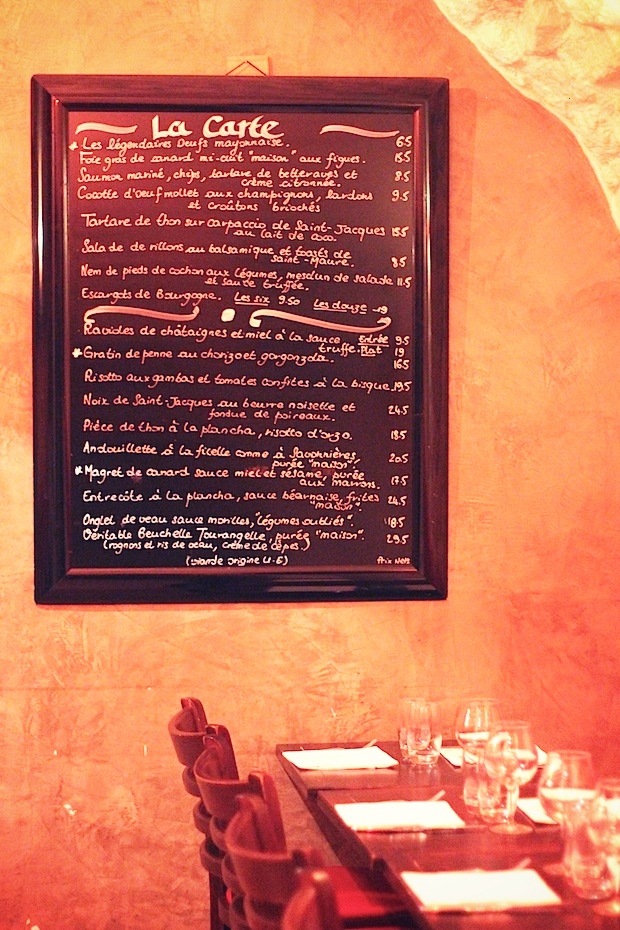 La Carte
* Les légendaires Oeufs mayonnaise. 6.5
Foie gras de canard mi-cuit "maison" aux figues. 15.5
Saumon mariné, chips, tartare de betteraves et 8.5
crème citronnée.
Cocotte d'oeuf mollet aux champignons, lardons 9.5
et croûtons briochés
Tartare de thon sur carpaccio de Saint-Jacques 15.5
au lait de coco.
Salade de rillons au balsamique et toasts de
Saint-Maure. 8.5
Nem de pieds de cochon aux légumes, mesclun de salade 11.5
et sauce truffée.
Escargots de Bourgogne. Les six 9.50 Les douze 19
Ravioles de châtaignes et miel à la sauce Entrée 9.5
truffe. Plat 19
* Gratin de penne au chorizo et gorgonzola. 16.5
Risotto aux gambas et tomates confites à la bisque 19.5
Noix de Saint-Jacques au beurre noisette et 24.5
fondue de poireaux.
Pièce de thon à la plancha, risotto d'orzo. 18.5
Andouillette à la ficelle comme à Savonnières, 20.5
purée "maison".
* Magret de canard sauce miel et sésame, purée 17.5
aux marrons.
Entrecôte à la plancha, sauce béarnaise, frites 24.5
"maison".
Onglet de veau sauce morilles, "légumes oubliés". 18.5
Véritable Beuchelle Tourangelle, purée "maison". 29.5
(rognons et ris de veau, crème de cèpes.)
(viande origine U.E) Prix Nets